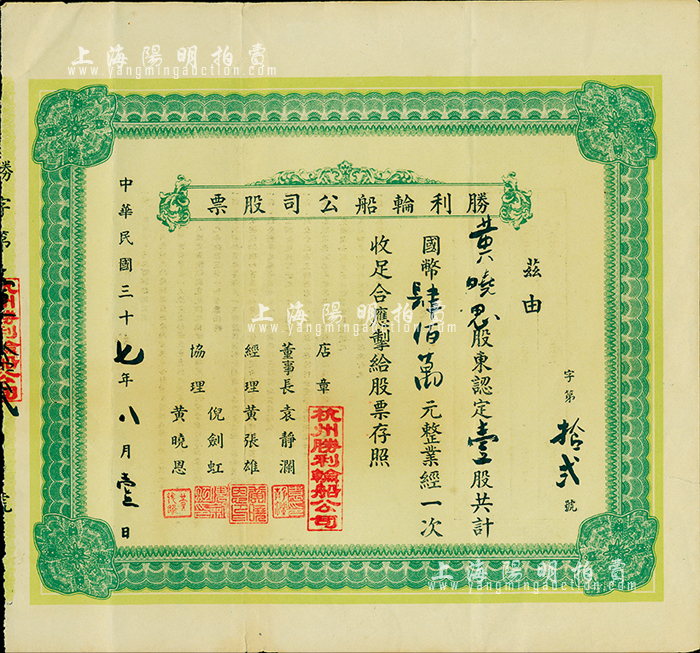 上海陽明拍賣
www.yangmingauction.com
勝利輪船公司股票
字第拾弍號
茲由
黃曉恩股東認定壹股共計
國幣肆佰萬元整業經一次
收足合應掣給股票存照
店章
杭州勝利輪船公司
董事長袁靜瀾
經理黃張雄
協理倪劍虹
黃曉恩
中華民國三十七年八月壹日
勝字第
號
上海陽明拍賣
www.yangmingauction.com
上海陽明拍賣
www.yangmingauction.com